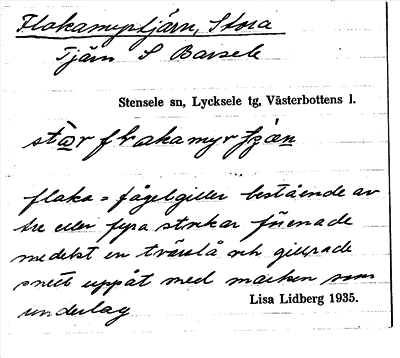 Flakamyrtjärn, Stora
Tjärn S Barsele
Stensele sn, Lycksele tg, Västerbottens l.
flaka = fågelgiller bestående av
tre eller fyra stockar förenade
medelst en tvärslå och gillrade
snett uppåt med marken som
underlag
Lisa Lidberg 1935.